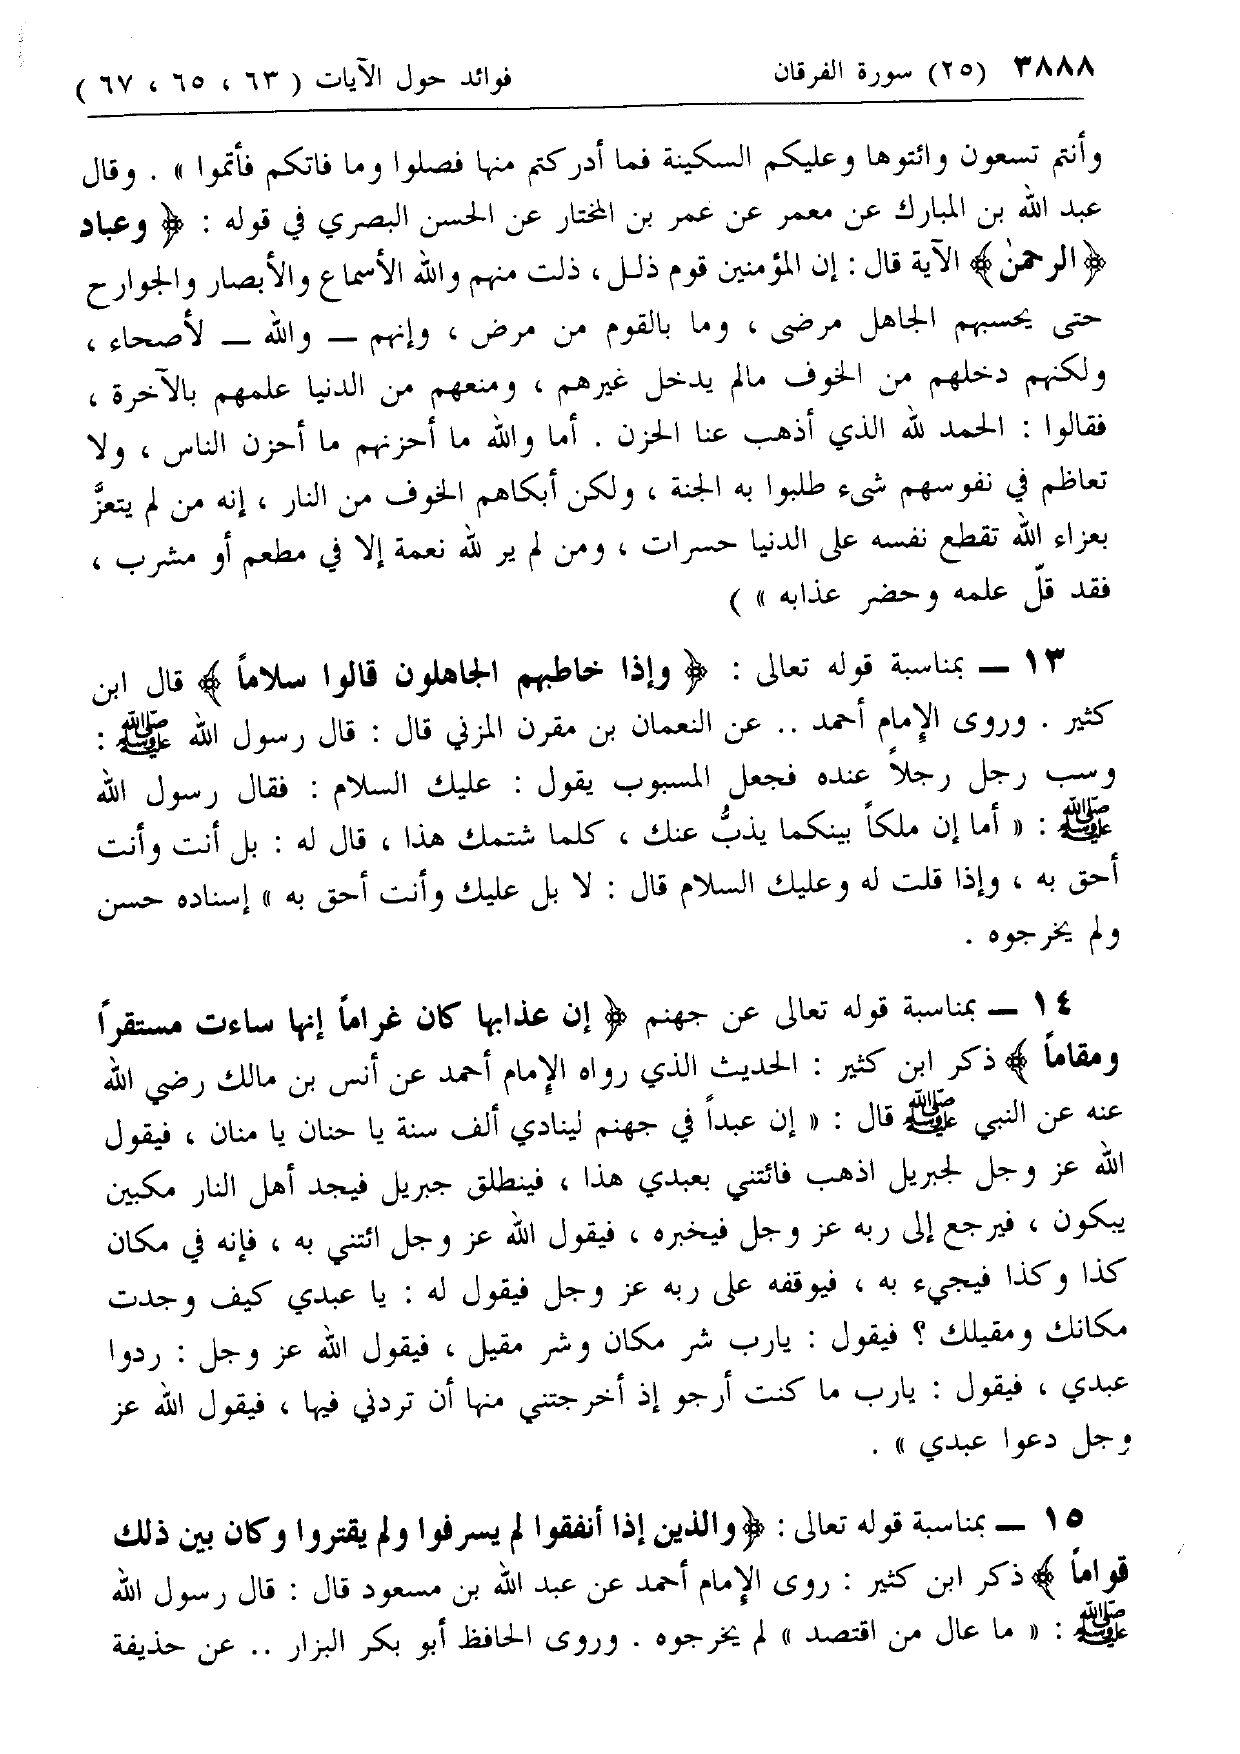 ٣٨٨٨ (٢٥) سورة الفرقان فوائد حول الآيات ( ٦٣ ، ٦٥ ، ٦٧ )
وأنتم تسعون وائتوها وعليكم السكينة فما أدركتم منها فصلوا وما فاتكم فأتموا » . وقال
عبد الله بن المبارك عن معمر عن عمر بن المختار عن الحسن البصري في قوله : ﴿ وعباد
الرحمٰن﴾ الآية قال : إن المؤمنين قوم ذلل ، ذلت منهم والله الأسماع والأبصار والجوارح
حتى يحسبهم الجاهل مرضى ، وما بالقوم من مرض ، وإنهم – والله – لأصحاء ،
ولكنهم دخلهم من الخوف مالم يدخل غيرهم ، ومنعهم من الدنيا علمهم بالآخرة ،
فقالوا : الحمد لله الذي أذهب عنا الحزن . أما والله ما أحزنهم ما أحزن الناس ، ولا
تعاظم في نفوسهم شيء طلبوا به الجنة ، ولكن أبكاهم الخوف من النار ، إنه من لم يتعزَّ
بعزاء الله تقطع نفسه على الدنيا حسرات ، ومن لم ير لله نعمة إلا في مطعم أو مشرب ،
فقد قلّ علمه وحضر عذابه » )
١٣ – بمناسبة قوله تعالى : ﴿ وإذا خاطبهم الجاهلون قالوا سلاماً ﴾ قال ابن
كثير . وروى الإمام أحمد .. عن النعمان بن مقرن المزني قال : قال رسول الله ﷺ :
وسب رجل رجلاً عنده فجعل المسبوب يقول : عليك السلام : فقال رسول الله
ﷺ : « أما إن ملكاً بينكما يذبُّ عنك ، كلما شتمك هذا ، قال له : بل أنت وأنت
أحق به ، وإذا قلت له وعليك السلام قال : لا بل عليك وأنت أحق به » إسناده حسن
ولم يخرجوه .
١٤ – بمناسبة قوله تعالى عن جهنم ﴿ إن عذابها كان غراماً إنها ساءت مستقراً
ومقاماً ﴾ ذكر ابن كثير : الحديث الذي رواه الإمام أحمد عن أنس بن مالك رضي الله
عنه عن النبي ﷺ قال : « إن عبداً في جهنم لينادي ألف سنة يا حنان يا منان ، فيقول
الله عز وجل لجبريل اذهب فائتني بعبدي هذا ، فينطلق جبريل فيجد أهل النار مكبين
يبكون ، فيرجع إلى ربه عز وجل فيخبره ، فيقول الله عز وجل ائتني به ، فإنه في مكان
كذا وكذا فيجيء به ، فيوقفه على ربه عز وجل فيقول له : يا عبدي كيف وجدت
مكانك ومقيلك ؟ فيقول : يارب شر مكان وشر مقيل ، فيقول الله عز وجل : ردوا
عبدي ، فيقول : يارب ما كنت أرجو إذ أخرجتني منها أن تردني فيها ، فيقول الله عز
وجل دعوا عبدي » .
١٥ – بمناسبة قوله تعالى : ﴿والذين إذا أنفقوا لم يسرفوا ولم يقتروا وكان بين ذلك
قواماً ﴾ ذكر ابن كثير : روى الإمام أحمد عن عبد الله بن مسعود قال : قال رسول الله
ﷺ : « ما عال من اقتصد » لم يخرجوه . وروى الحافظ أبو بكر البزار .. عن حذيفة